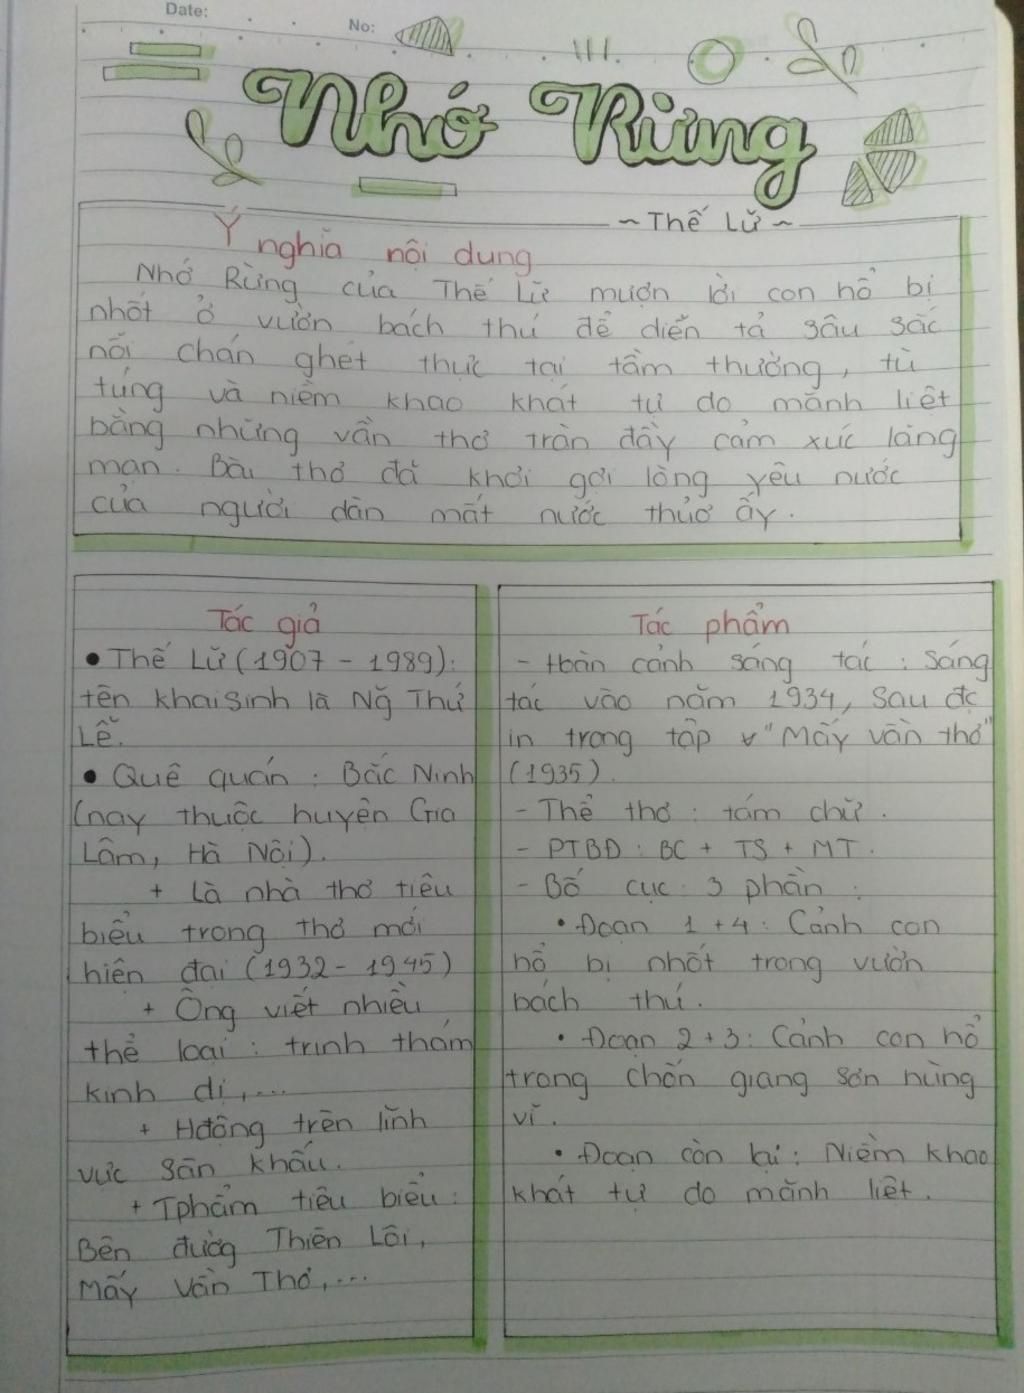 Date:
No:
Nhớ Rừng
~ Thế Lữ ~
Ý nghĩa nội dung
Nhớ Rừng của Thế Lữ mượn lời con hổ bị
nhốt ở vườn bách thú để diễn tả sâu sắc
nỗi chán ghét thực tại tầm thường, tù
túng và niềm khao khát tự do mãnh liệt
bằng những vần thơ tràn đầy cảm xúc lãng
mạn. Bài thơ đã khơi gợi lòng yêu nước
của người dân mất nước thủơ ấy.
Tác giả
• Thế Lữ (1907 - 1989):
tên khai sinh là Ng̃ Thứ
Lễ.
• Quê quán: Bắc Ninh
(nay thuộc huyện Gia
Lâm, Hà Nội).
+ Là nhà thơ tiêu
biểu trong thơ mới
hiện đại (1932 - 1945)
+ Ông viết nhiều
thể loại: trinh thám
kinh dị,...
+ Hđộng trên lĩnh
vực sân khấu.
+ Tphẩm tiêu biểu:
Bên đườg Thiên Lôi,
Mấy Vần Thơ,...
Tác phẩm
- Hoàn cảnh sáng tác: Sáng
tác vào năm 1934, sau đc
in trong tập "Mấy vần thơ"
(1935).
- Thể thơ: tám chữ.
- PTBĐ: BC + TS + MT.
- Bố cục: 3 phần:
• Đoạn 1+4: Cảnh con
hổ bị nhốt trong vườn
bách thú.
• Đoạn 2+3: Cảnh con hổ
trong chốn giang sơn hùng
vĩ.
• Đoạn còn lại: Niềm khao
khát tự do mãnh liệt.